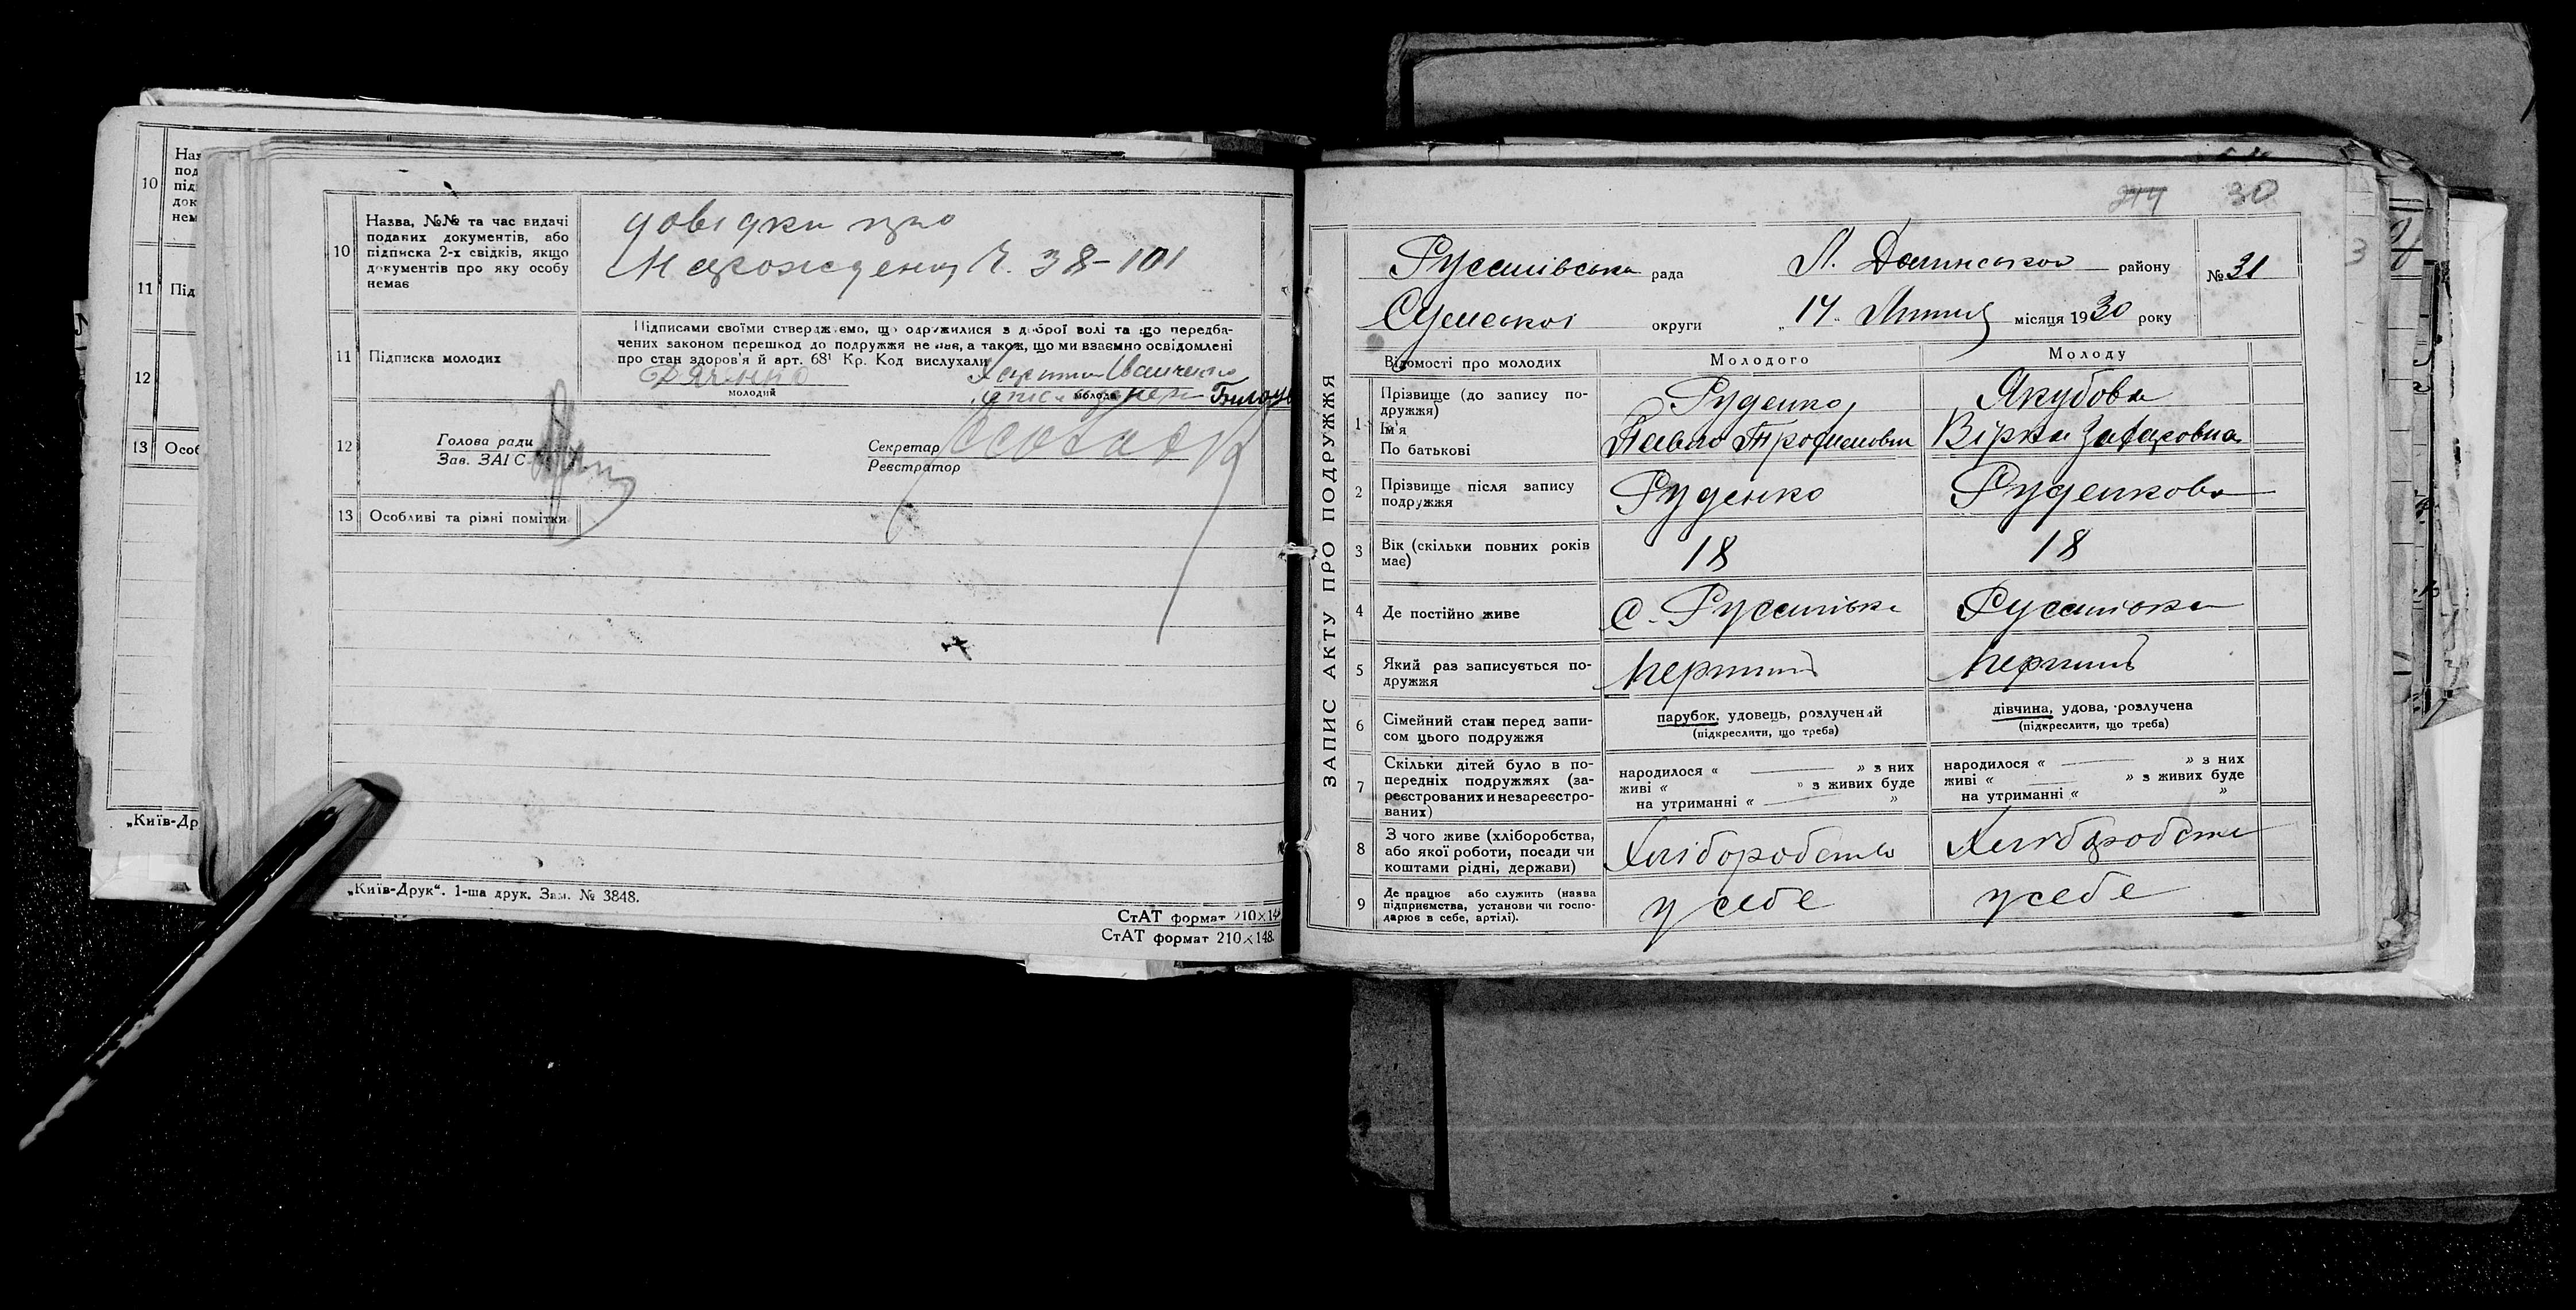 10
11
12
13
Назва, №№ та час видачі
поданих документів, або
підписка 2-х свідків, якщо
документів про яку особу
немає
довідки про
Нарождения Ч. 38-101
Підписка молодих
Підписами своїми стверджуємо, що одружилися з доброї волі та що передба-
чених законом перешкод до подружжя не має, а також, що ми взаємно освідомлені
про стан здоров'я й арт. 68¹ Кр. Код вислухали
молодий
молода
Голова ради
Зав. ЗАГС
Секретар
Реєстратор
Особливі та різні помітки
„Київ-Друк“. 1-ша друк. Зам. № 3848.
СтАТ формат 210×148
СтАТ формат 210×148.
„Київ-Др
30
ЗАПИС АКТУ ПРО ПОДРУЖЖЯ
Русанівська рада Л. Долинського району № 31
Сумської округи „14„ Липня місяця 1930 року
Відомості про молодих Молодого Молоду
1 Прізвище (до запису по-
дружжя)
Ім'я
По батькові
Руденко Якубова
Павло Трофимович Вірка Захаровна
2 Прізвище після запису
подружжя
Руденко Руденкова
3 Вік (скільки повних років
має)
18 18
4 Де постійно живе с. Русанівка Русанівка
5 Який раз записується по-
дружжя
перший перший
6 Сімейний стан перед запи-
сом цього подружжя
парубок, удовець, розлучений
(підкреслити, що треба)
дівчина, удова, розлучена
(підкреслити, що треба)
7 Скільки дітей було в по-
передніх подружжях (за-
реєстрованих и незареєстро-
ваних)
народилося « — » з них
живі « » з живих буде
на утриманні « — »
народилося « — » з них
живі « — » з живих буде
на утриманні « »
8 З чого живе (хліборобства,
або якої роботи, посади чи
коштами рідні, держави)
Хліборобство Хліборобство
9 Де працює або служить (назва
підприємства, установи чи госпо-
дарює в себе, артілі).
у себе у себе